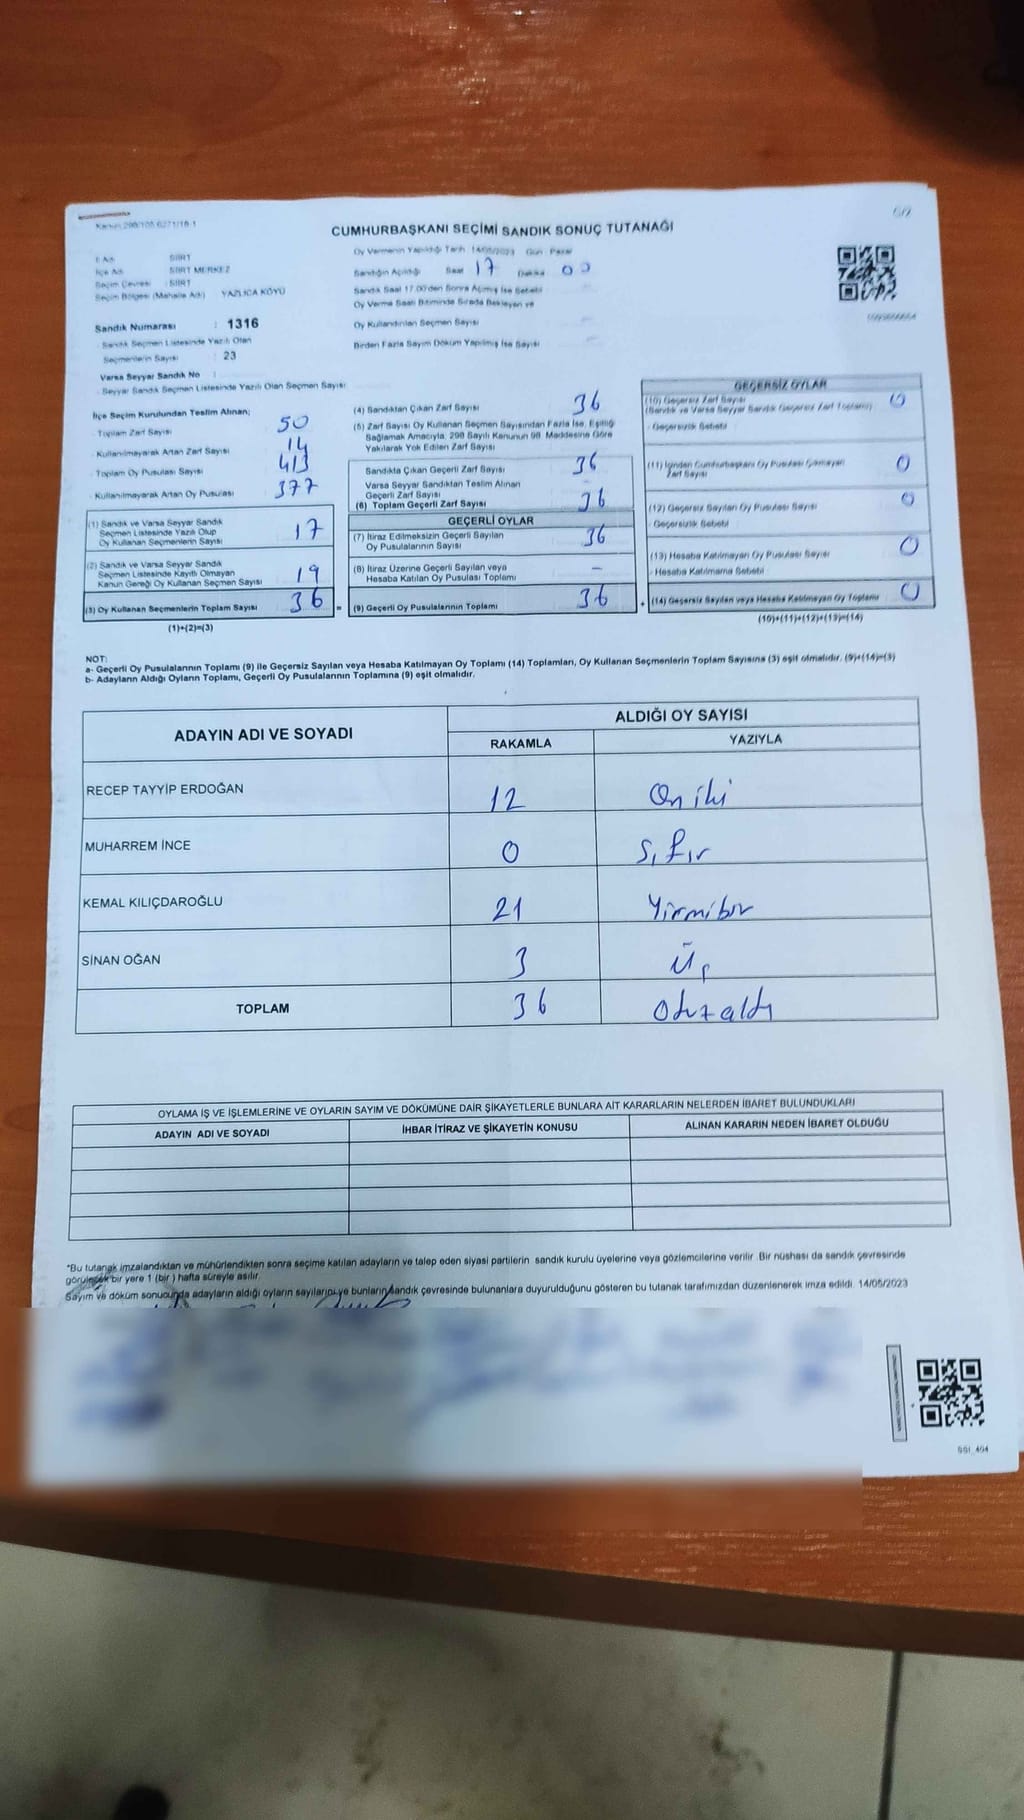 CUMHURBAŞKANI SEÇİMİ SANDIK SONUÇ TUTANAĞI
İl Adı SİİRT
İlçe Adı SİİRT MERKEZ
Seçim Çevresi : SİİRT
Seçim Bölgesi (Mahalle Adı) YAZLICA KÖYÜ
Sandık Numarası : 1316
Sandık Seçmen Listesinde Yazılı Olan
Seçmenlerin Sayısı : 23
Varsa Seyyar Sandık No
- Seyyar Sandık Seçmen Listesinde Yazılı Olan Seçmen Sayısı
Oy Vermenin Yapıldığı Tarih 14/05/2023 Gün Pazar
Sandığın Açıldığı Saat 17 Dakika 00
Sandık Saat 17.00'den Sonra Açılmış İse Sebebi
Oy Verme Saati Bitiminde Sırada Bekleyen ve
Oy Kullandırılan Seçmen Sayısı
Birden Fazla Sayım Döküm Yapılmış İse Sayısı
İlçe Seçim Kurulundan Teslim Alınan;
- Toplam Zarf Sayısı 50
- Kullanılmayarak Artan Zarf Sayısı 14
- Toplam Oy Pusulası Sayısı 413
- Kullanılmayarak Artan Oy Pusulası 377
(1) Sandık ve Varsa Seyyar Sandık
Seçmen Listesinde Yazılı Olup
Oy Kullanan Seçmenlerin Sayısı 17
(2) Sandık ve Varsa Seyyar Sandık
Seçmen Listesinde Kayıtlı Olmayan
Kanun Gereği Oy Kullanan Seçmen Sayısı 19
(3) Oy Kullanan Seçmenlerin Toplam Sayısı 36 =
(1)+(2)=(3)
(4) Sandıktan Çıkan Zarf Sayısı 36
(5) Zarf Sayısı Oy Kullanan Seçmen Sayısından Fazla İse, Eşitliği
Sağlamak Amacıyla, 298 Sayılı Kanunun 98. Maddesine Göre
Yakılarak Yok Edilen Zarf Sayısı
Sandıkta Çıkan Geçerli Zarf Sayısı 36
Varsa Seyyar Sandıktan Teslim Alınan
Geçerli Zarf Sayısı
(6) Toplam Geçerli Zarf Sayısı 36
GEÇERLİ OYLAR
(7) İtiraz Edilmeksizin Geçerli Sayılan
Oy Pusulalarının Sayısı 36
(8) İtiraz Üzerine Geçerli Sayılan veya
Hesaba Katılan Oy Pusulası Toplamı –
(9) Geçerli Oy Pusulalarının Toplamı 36 +
GEÇERSİZ OYLAR
(10) Geçersiz Zarf Sayısı 0
(Sandık ve Varsa Seyyar Sandık Geçersiz Zarf Toplamı)
- Geçersizlik Sebebi
(11) İçinden Cumhurbaşkanı Oy Pusulası Çıkmayan
Zarf Sayısı 0
(12) Geçersiz Sayılan Oy Pusulası Sayısı 0
- Geçersizlik Sebebi
(13) Hesaba Katılmayan Oy Pusulası Sayısı 0
- Hesaba Katılmama Sebebi
(14) Geçersiz Sayılan veya Hesaba Katılmayan Oy Toplamı 0
(10)+(11)+(12)+(13)=(14)
NOT:
a- Geçerli Oy Pusulalarının Toplamı (9) ile Geçersiz Sayılan veya Hesaba Katılmayan Oy Toplamı (14) Toplamları, Oy Kullanan Seçmenlerin Toplam Sayısına (3) eşit olmalıdır. (9)+(14)=(3)
b- Adayların Aldığı Oyların Toplamı, Geçerli Oy Pusulalarının Toplamına (9) eşit olmalıdır.
ADAYIN ADI VE SOYADI ALDIĞI OY SAYISI
RAKAMLA YAZIYLA
RECEP TAYYİP ERDOĞAN 12 On iki
MUHARREM İNCE 0 Sıfır
KEMAL KILIÇDAROĞLU 21 Yirmibir
SİNAN OĞAN 3 Üç
TOPLAM 36 Otuzaltı
OYLAMA İŞ VE İŞLEMLERİNE VE OYLARIN SAYIM VE DÖKÜMÜNE DAİR ŞİKAYETLERLE BUNLARA AİT KARARLARIN NELERDEN İBARET BULUNDUKLARI
ADAYIN ADI VE SOYADI İHBAR İTİRAZ VE ŞİKAYETİN KONUSU ALINAN KARARIN NEDEN İBARET OLDUĞU
*Bu tutanak imzalandıktan ve mühürlendikten sonra seçime katılan adayların ve talep eden siyasi partilerin sandık kurulu üyelerine veya gözlemcilerine verilir. Bir nüshası da sandık çevresinde
görülecek bir yere 1 (bir) hafta süreyle asılır.
Sayım ve döküm sonucunda adayların aldığı oyların sayılarını ve bunların sandık çevresinde bulunanlara duyurulduğunu gösteren bu tutanak tarafımızdan düzenlenerek imza edildi. 14/05/2023